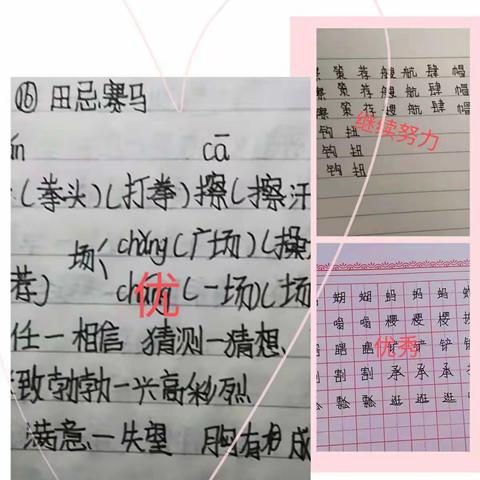 ⑯ 田忌赛马
cā
(拳头)(打拳)擦(擦汗
场 chǎng(广场)(操
荐) (一场)(场
优
任一相信 猜测一猜想、
致勃勃一兴高彩烈
满意一失望 胸有
策 荐 艘 航 肆 帽
策 荐 艘 航 肆 帽
策 存 艘 航 肆 帽
钩 扭
钩 扭
钩 扭
继续努力
蝴 蝴 蚂 蚂 蚂
嗡 嗡 樱 樱 樱
铲 铲
优秀
割 割 承 承 承
瓢 瓢 逛 逛 逛